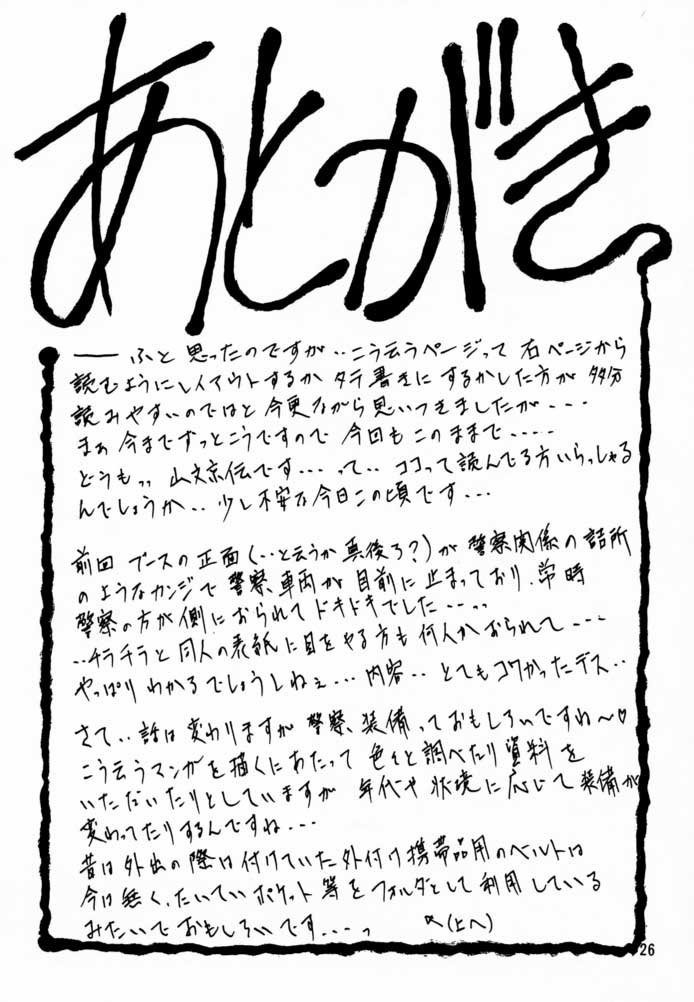 あとがき
── ふと思ったのですが‥こう云うページって右ページから
読むようにレイアウトするかタテ書きにするかした方が多分
読みやすいのではと今更ながら思いつきましたが---
まぁ今までずっとこうですので今回もこのままで-----
どうもっ。山文京伝です---って‥ココって読んでる方いらっしゃる
んでしょうか‥少し不安な今日この頃です---
前回ブースの正面(‥と云うか真後ろ?)が警察関係の詰所
のようなカンジで警察車両が目前に止まっており、常時
警察の方が側におられてドキドキでした---っ。
‥チラチラと同人の表紙に目をやる方も何人かおられて---
やっぱりわかるでしょうしねぇ---内容‥とてもコワかったデス‥
さて‥話は変わりますが警察、装備っておもしろいですね〜♡
こう云うマンガを描くにあたって色々と調べたり資料を
いただいたりとしていますが 年代や状境に応じて装備が
変わってたりするんですね---
昔は外出の際は付けていた外付け携帯品用のベルトは
今は無く、たいていポケット等をフォルダとして利用している
みたいでおもしろいです---っ
(上へ)
26